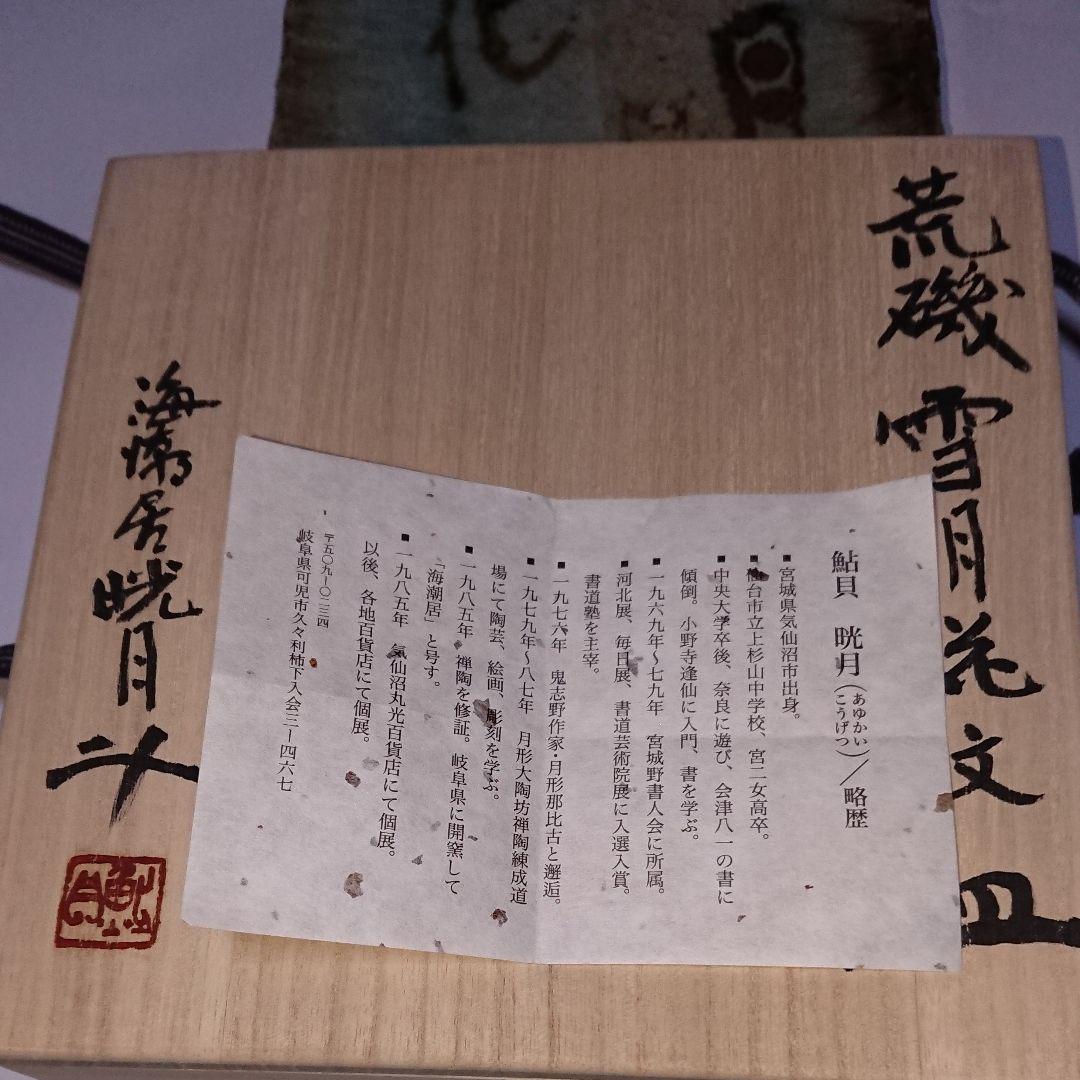 花
荒磯 雪月花文 皿
海潮居 晄月
鮎貝 晄月(あゆかい こうげつ)/略歴
■宮城県気仙沼市出身。
■仙台市立上杉山中学校、宮二女高卒。
■中央大学卒後、奈良に遊び、会津八一の書に
傾倒。小野寺逢仙に入門、書を学ぶ。
■一九六九年〜七九年 宮城野書人会に所属。
河北展、毎日展、書道芸術院展に入選入賞。
書道塾を主宰。
■一九七六年 鬼志野作家・月形那比古と邂逅。
■一九七九年〜八七年 月形大陶坊禅陶練成道
場にて陶芸、絵画、彫刻を学ぶ。
■一九八五年 禅陶を修証。岐阜県に開窯して
「海潮居」と号す。
■一九八五年 気仙沼丸光百貨店にて個展。
以後、各地百貨店にて個展。
〒五〇九-〇二三四
岐阜県可児市久々利柿下入会三-四六七